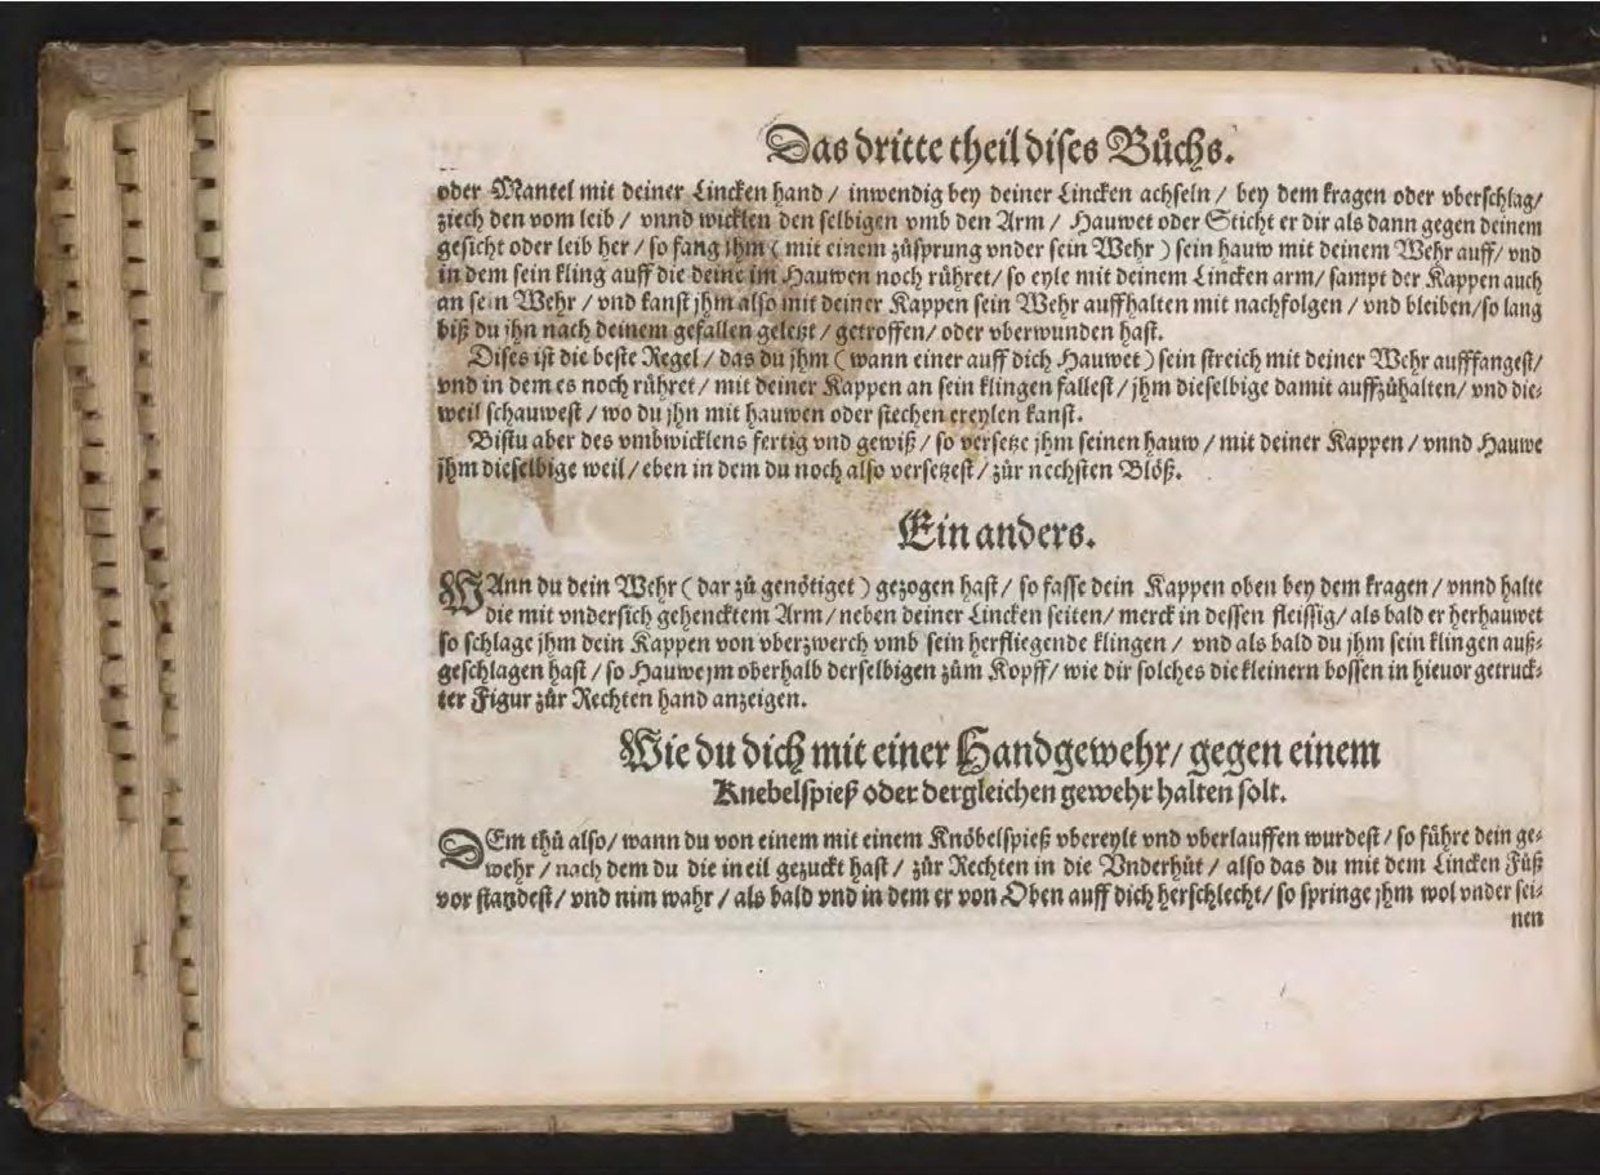 Das dritte theil dises Bůchs.
oder Mantel mit deiner Lincken hand / inwendig bey deiner Lincken achseln / bey dem kragen oder vberschlag/
ziech den vom leib / vnnd wicklen den selbigen vmb den Arm / Hauwet oder Sticht er dir als dann gegen deinem
gesicht oder leib her / so fang jhm ( mit einem zůsprung vnder sein Wehr ) sein hauw mit deinem Wehr auff/ vnd
in dem sein kling auff die deine im Hauwen noch rühret/ so eyle mit deinem Lincken arm/ sampt der Kappen auch
an sein Wehr / vnd kanst jhm also mit deiner Kappen sein Wehr auffhalten mit nachfolgen / vnd bleiben/so lang
biß du jhn nach deinem gefallen geletzt / getroffen/ oder vberwunden hast.
Dises ist die beste Regel / das du jhm ( wann einer auff dich Hauwet ) sein streich mit deiner Wehr aufffangest/
vnd in dem es noch rühret/ mit deiner Kappen an sein klingen fallest / jhm dieselbige damit auffzůhalten/ vnd die-
weil schauwest / wo du jhn mit hauwen oder stechen ereylen kanst.
Bistu aber des vmbwicklens fertig vnd gewiß / so versetze jhm seinen hauw / mit deiner Kappen / vnnd Hauwe
jhm dieselbige weil / eben in dem du noch also versetzest / zůr nechsten Blöß.
Ein anders.
WAnn du dein Wehr ( dar zů genötiget ) gezogen hast / so fasse dein Kappen oben bey dem kragen / vnnd halte
die mit vndersich gehencktem Arm / neben deiner Lincken seiten/ merck in dessen fleissig/ als bald er herhauwet
so schlage jhm dein Kappen von vberzwerch vmb sein herfliegende klingen / vnd als bald du jhm sein klingen auß-
geschlagen hast / so Hauwe jm oberhalb derselbigen zům Kopff/ wie dir solches die kleinern bossen in hieuor getruck-
ter Figur zůr Rechten hand anzeigen.
Wie du dich mit einer Handgewehr/ gegen einem
Knebelspieß oder dergleichen gewehr halten solt.
DEm thů also/ wann du von einem mit einem Knöbelspieß vbereylt vnd vberlauffen wurdest / so führe dein ge-
wehr / nach dem du die in eil gezuckt hast / zůr Rechten in die Vnderhůt / also das du mit dem Lincken Fůß
vor standest/ vnd nim wahr / als bald vnd in dem er von Oben auff dich herschlecht/ so springe jhm wol vnder sei-
nen